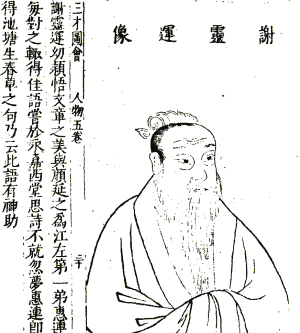 謝靈運像
三才圖會 人物五卷 二十
謝靈運幼穎悟文章之美與顏延之為江左第一弟惠連
每對之輒得佳語嘗於永嘉西堂思詩不就忽夢惠連即
得池塘生春草之句乃云此語有神助